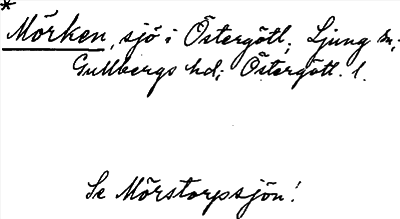 *
Mörken, sjö i Östergötl., Ljung sn,
Gullbergs hd; Östergötl. l.
Se Mörstorpssjön!